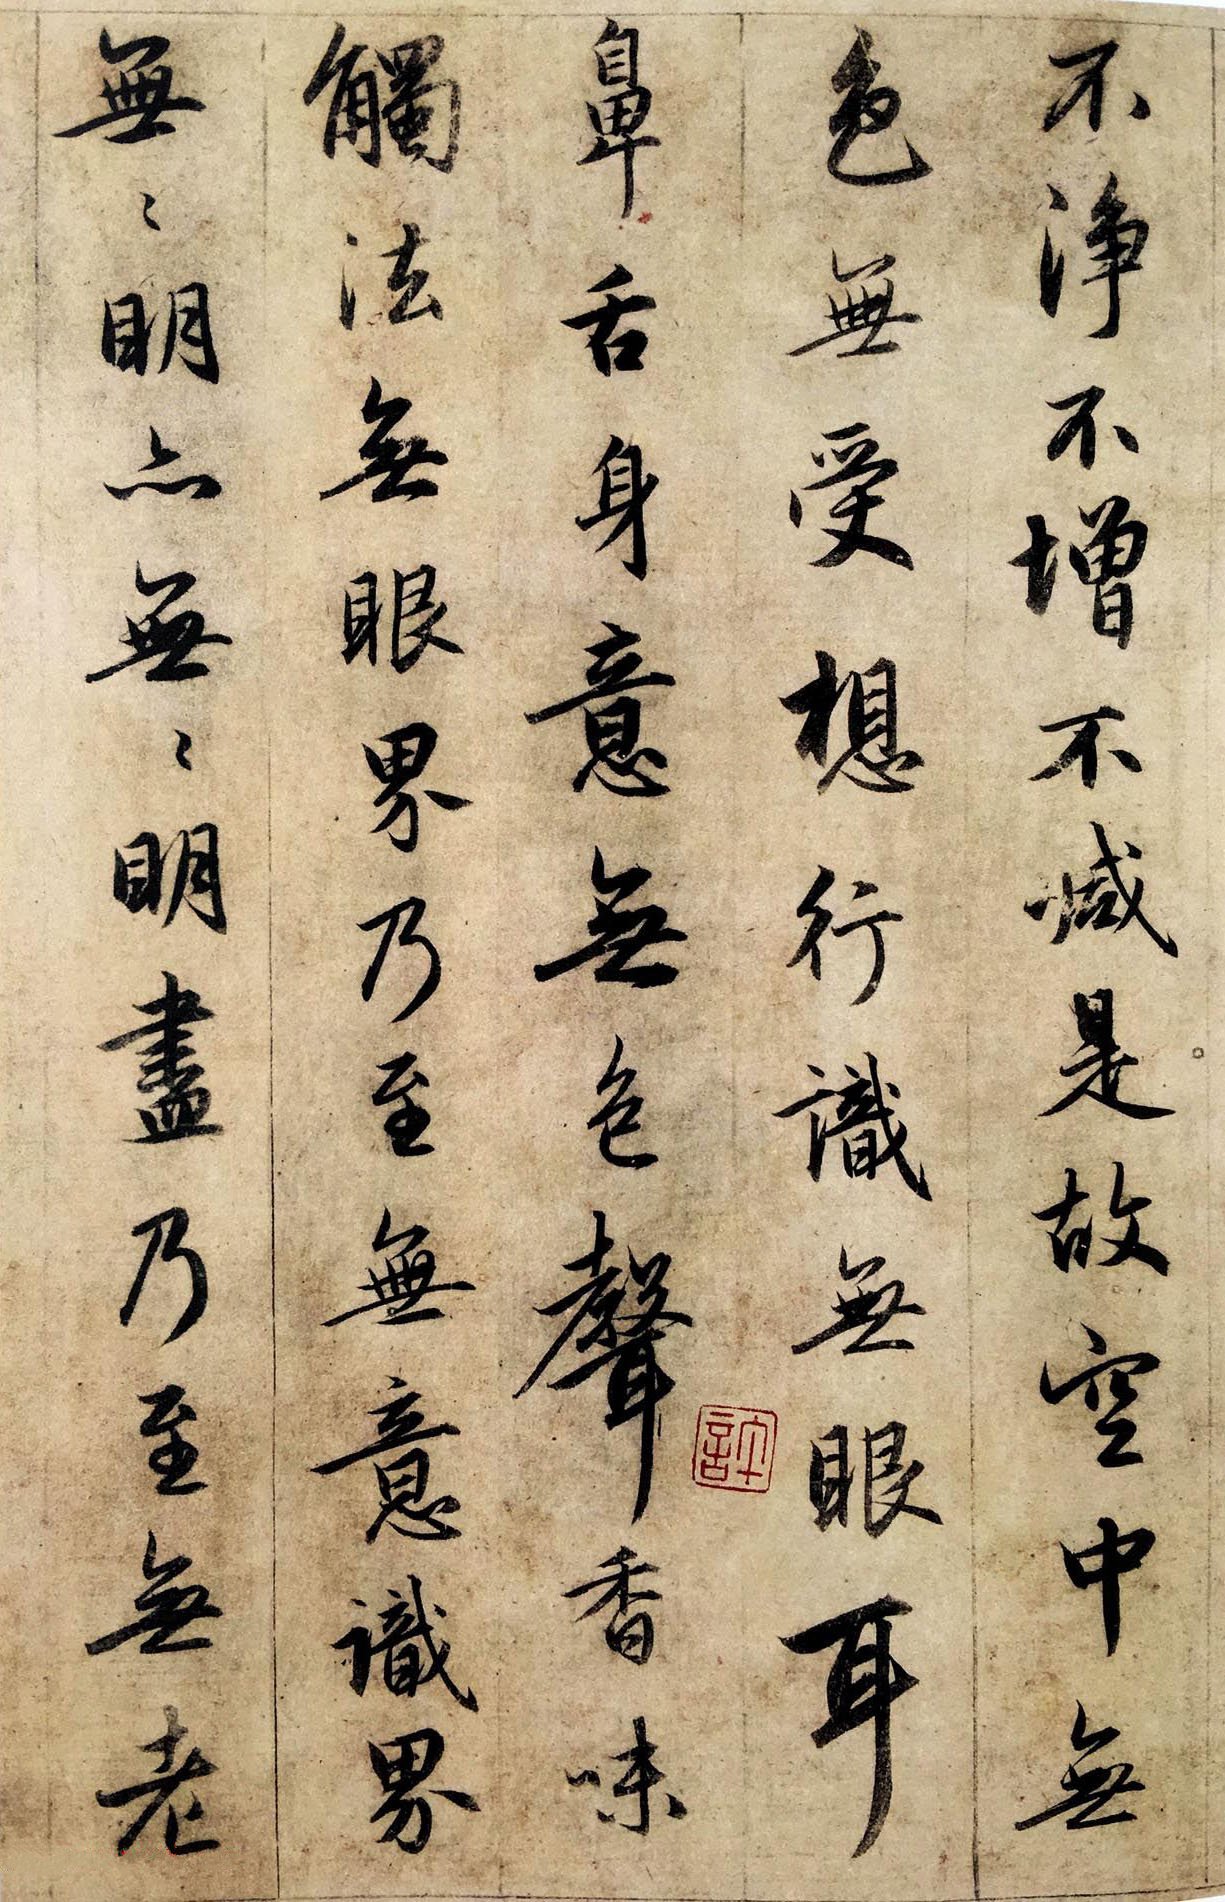 不淨不增不減是故空中無
色無受想行識無眼耳
鼻舌身意無色聲香味
觸法無眼界乃至無意識界
無〻明亦無〻明盡乃至無老